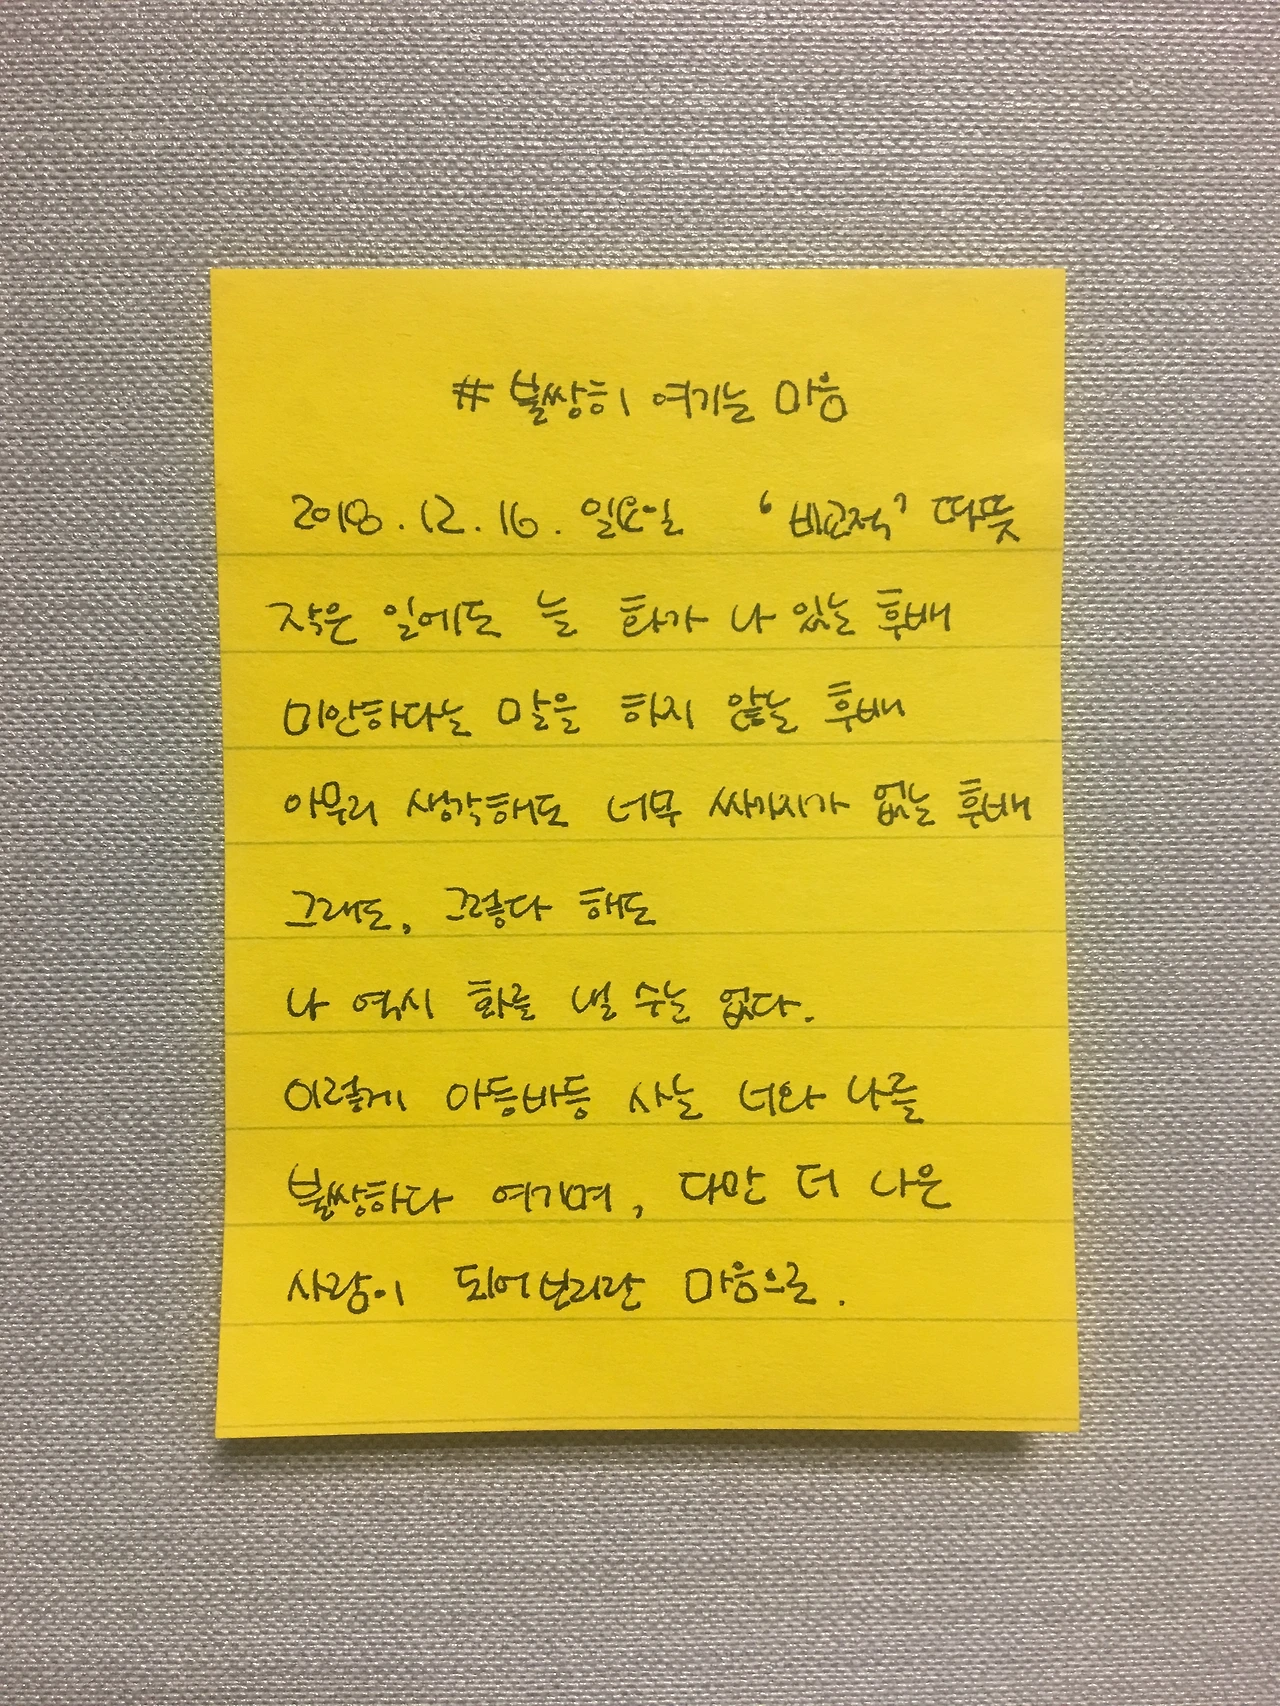 # 불쌍히 여기는 마음
2018. 12. 16. 일요일 '비교적' 따뜻
작은 일에도 늘 화가 나 있는 후배
미안하다는 말을 하지 않는 후배
아무리 생각해도 너무 싸가지가 없는 후배
그래도, 그렇다 해도
나 역시 화를 낼 수는 없다.
이렇게 아등바등 사는 너와 나를
불쌍하다 여기며, 다만 더 나은
사람이 되어보리란 마음으로.